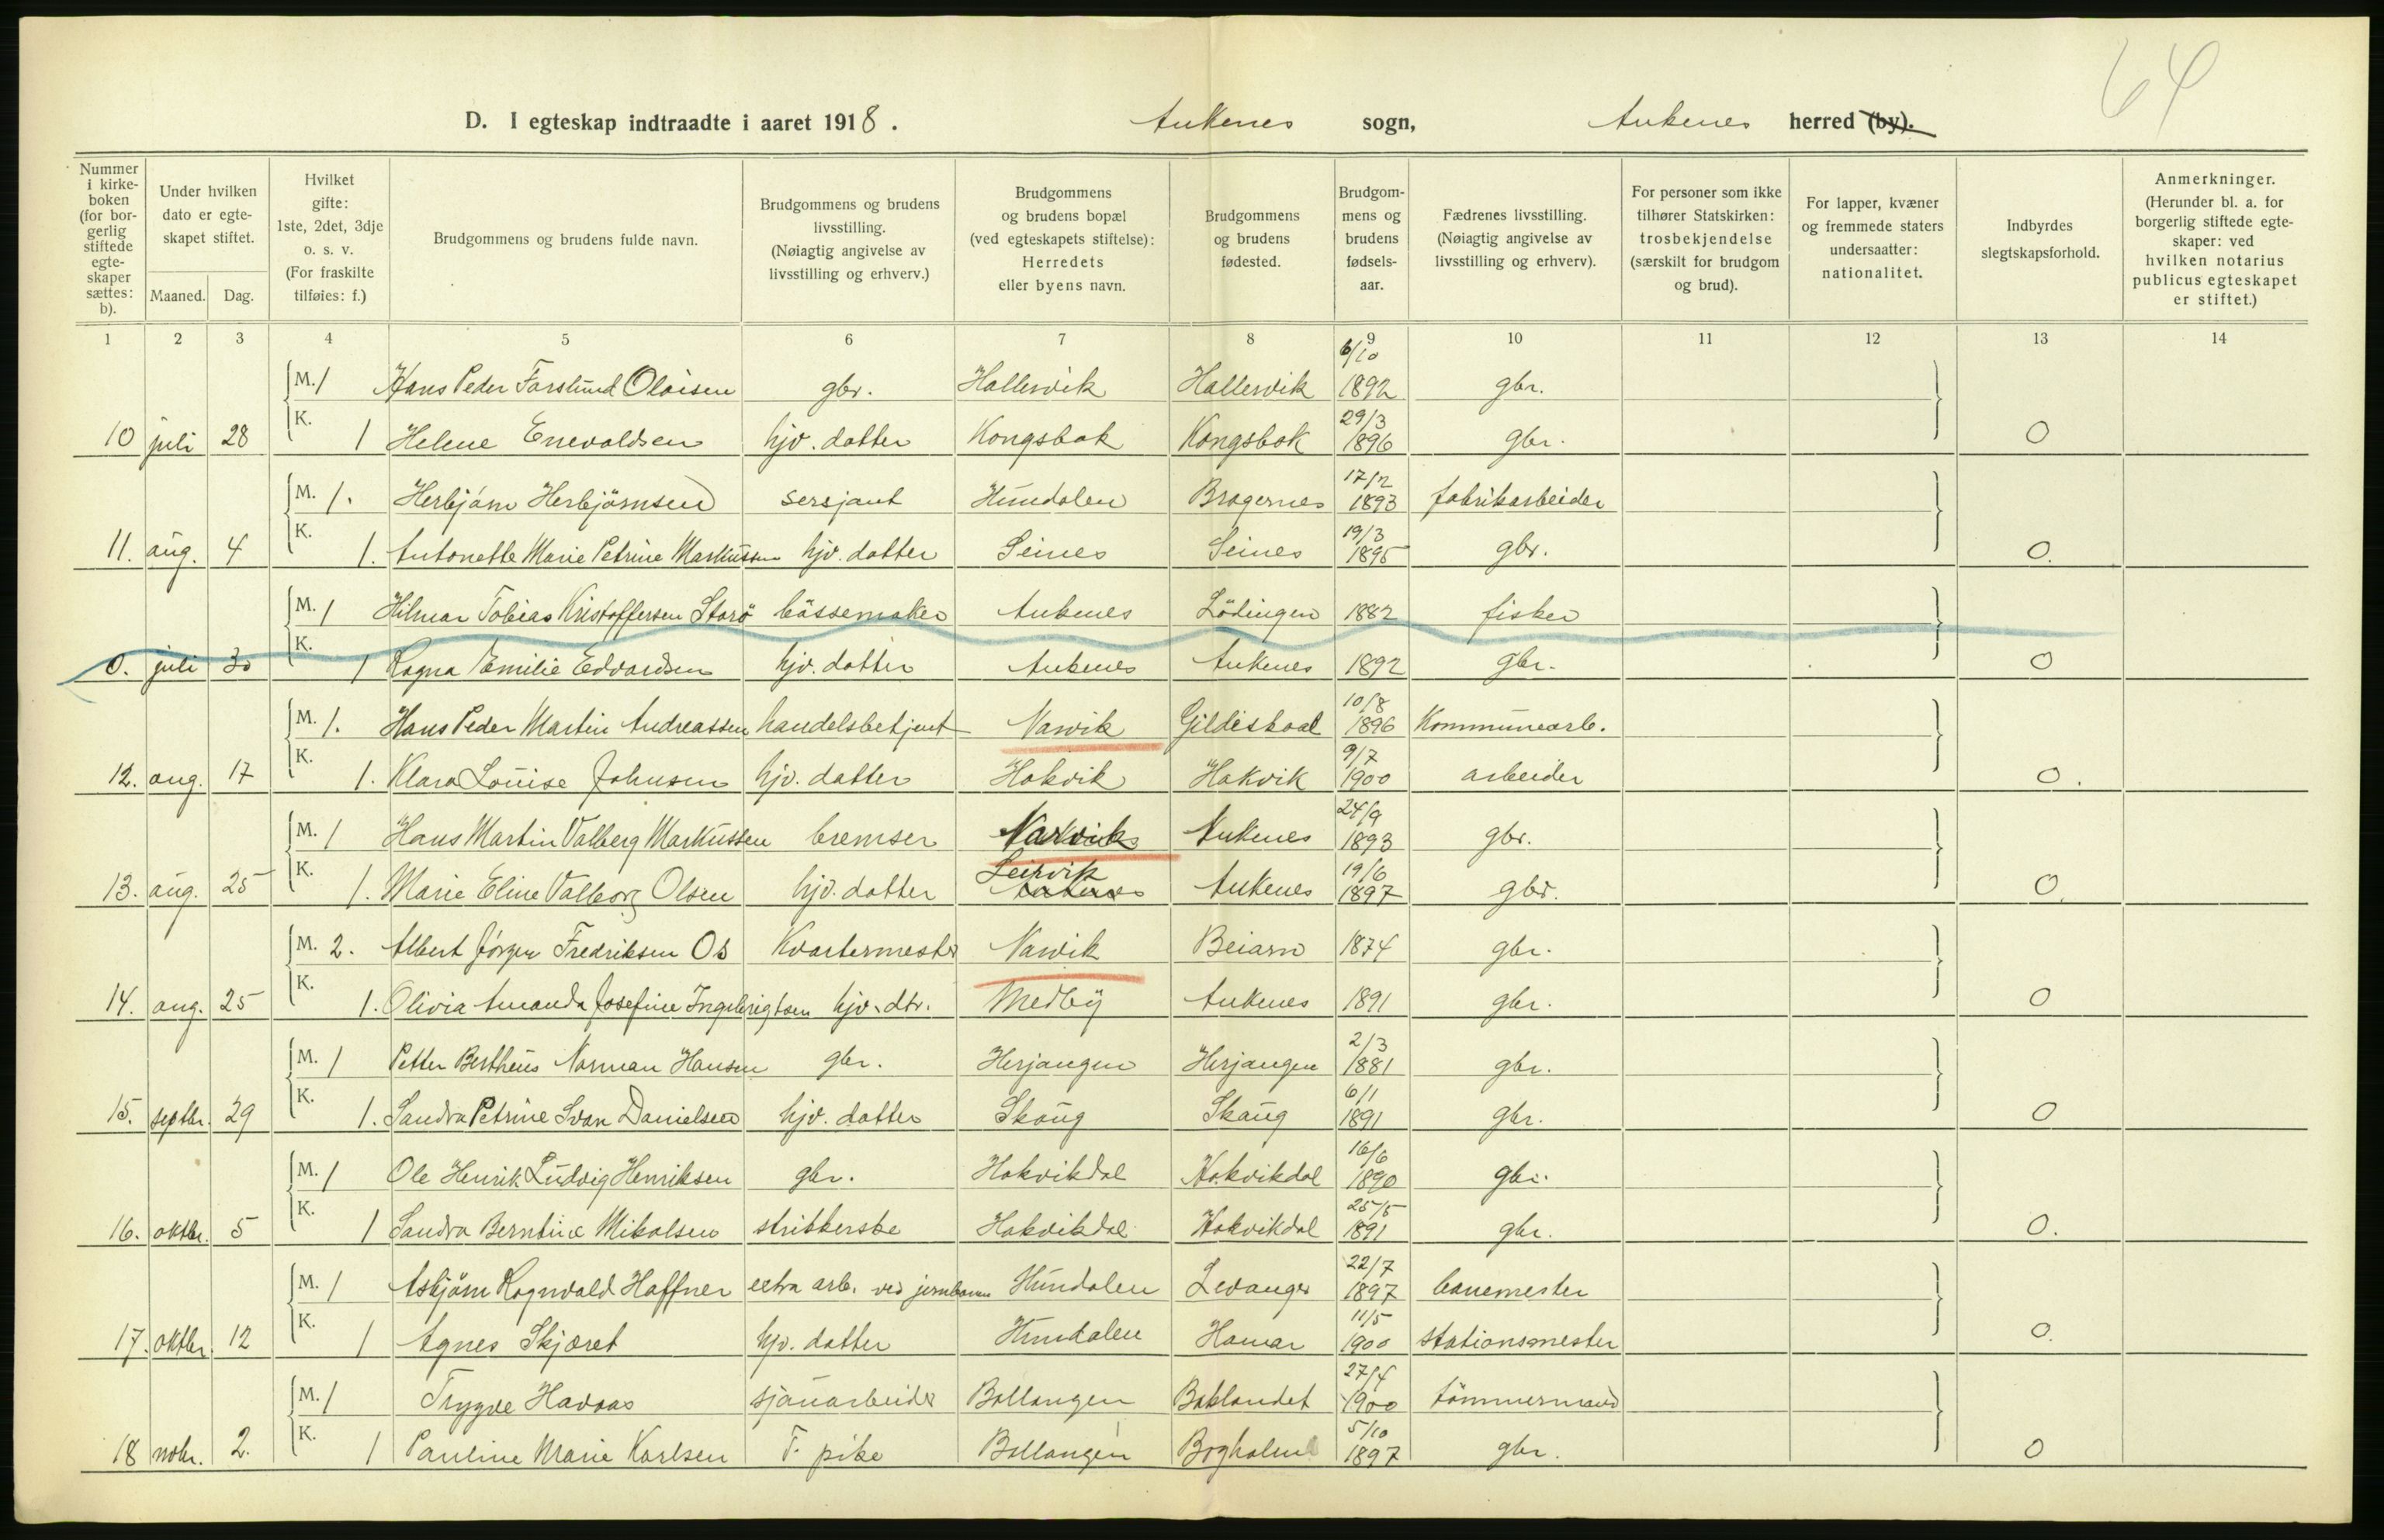 64
D. I egteskap indtraadte i aaret 1918. Ankenes sogn, Ankenes herred (by).
Nummer i kirkeboken (for borgerlig stiftede egteskaper sættes: b).
Under hvilken dato er egteskapet stiftet.
Maaned. Dag.
Hvilket gifte: 1ste, 2det, 3dje o. s. v. (For fraskilte tilføies: f.)
Brudgommens og brudens fulde navn.
Brudgommens og brudens livsstilling. (Nøiagtig angivelse av livsstilling og erhverv.)
Brudgommens og brudens bopæl (ved egteskapets stiftelse): Herredets eller byens navn.
Brudgommens og brudens fødested.
Brudgommens og brudens fødselsaar.
Fædrenes livsstilling. (Nøiagtig angivelse av livsstilling og erhverv).
For personer som ikke tilhører Statskirken: trosbekjendelse (særskilt for brudgom og brud).
For lapper, kvæner og fremmede staters undersaatter: nationalitet.
Indbyrdes slegtskapsforhold.
Anmerkninger. (Herunder bl. a. for borgerlig stiftede egteskaper: ved hvilken notarius publicus egteskapet er stiftet.)
1 2 3 4 5 6 7 8 9 10 11 12 13 14
M. 1 Hans Peder Forslund Olaisen gbr. Hallervik Hallervik 6/10 1892 gbr.
10 juli 28 K. 1 Helene Enevoldsen hjv. datter Kongsbak Kongsbak 29/3 1896 gbr. 0
M. 1. Herbjörn Herbjörnsen sersjant Hundalen Bragernes 17/2 1893 fabrikarbeider
11. aug. 4 K. 1. Antonette Marie Petrine Markussen hjv. datter Seines Seines 19/3 1895 gbr. 0.
M. 1 Hilmar Tobias Kristoffersen Storö bössemaker Ankenes Lödingen 1882 fisker
0. juli 30 K. 1 Ragna Emilie Edvardsen hjv. datter Ankenes Ankenes 1892 gbr. 0
M. 1. Hans Peder Martin Andreassen handelsbetjent Narvik Gildeskaal 10/8 1896 Kommunearb.
12. aug. 17 K. 1. Klara Louise Johnsen hjv. datter Hakvik Hakvik 9/7 1900 arbeider 0.
M. 1 Hans Martin Valberg Markussen bremser Narvik Ankenes 24/9 1893 gbr.
13. aug. 25 K. 1. Marie Eline Valborg Olsen hjv. datter Leirvik Ankenes Ankenes 19/6 1897 gbr. 0.
M. 2. Albert Jörgen Fredriksen Os Kvartermester Narvik Beiarn 1874 gbr.
14. aug. 25 K. 1. Olivia Amanda Josefine Ingebrigtsen hjv. dtr. Medby Ankenes 1891 gbr. 0
M. 1 Petter Bertheus Norman Hansen gbr. Herjangen Herjangen 2/3 1881 gbr.
15. septbr. 29 K. 1. Sandra Petrine Svan Danielsen hjv. datter Skaug Skaug 6/1 1891 gbr. 0
M. 1 Ole Henrik Ludvig Henriksen gbr. Hakvikdal Hakvikdal 16/6 1890 gbr.
16. oktbr. 5 K. 1 Sandra Berntine Mikalsen strikkerske Hakvikdal Hakvikdal 25/5 1891 gbr. 0.
M. 1 Asbjörn Ragnvald Haffner extra arb. ved jernbanen Hundalen Levanger 22/7 1897 banemester
17. oktbr. 12 K. 1 Agnes Skjæret hjv. datter Hundalen Hamar 11/5 1900 stationsmester 0.
M. 1 Trygve Havaas sjauarbeider Ballangen Baklandet 27/4 1900 tömmermand
18 nobr. 2. K. 1 Pauline Marie Karlsen T. pike Ballangen Bogholm 5/10 1897 gbr. 0